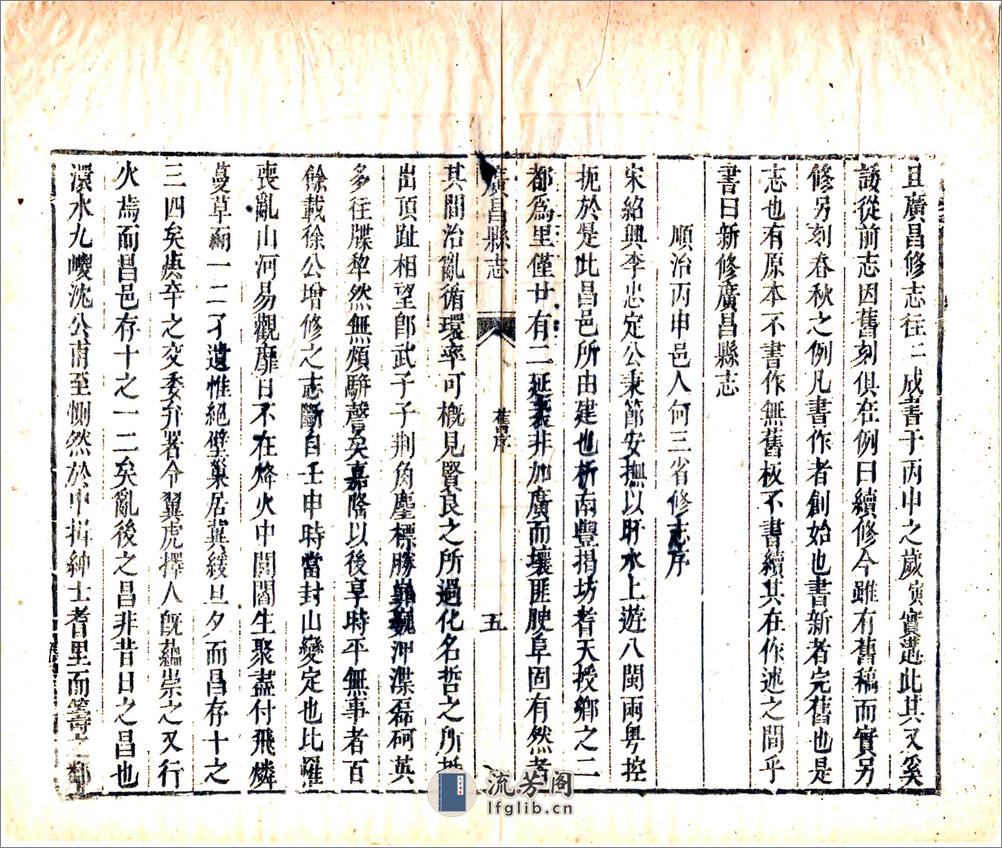 且廣昌修志往往成書于丙申之歲演實遘此其又奚
諉從前志因舊刻俱在例曰續修今雖有舊稿而實另
修另刻春秋之例凡書作者創始也書新者完舊也是
志也有原本不書作無舊板不書續其在作述之間乎
書曰新修廣昌縣志
順治丙申邑人何三省修志序
宋紹興李忠定公秉節安撫以盱水上遊八閩兩粤控
扼於是此昌邑所由建也析南豐揭坊耆天授鄉之二
都爲里僅廿有二延袤非加廣而壤匪腴阜固有然者
廣昌縣志
舊序
五
其間治亂循環率可概見賢良之所過化名哲之所挺
出頂趾相望郎武子子荆角塵標勝巍沖渫磊砢英
多往牒犂然無煩騈聲矣嘉隆以後享時平無事者百
餘載徐公增修之志斷自壬申時當封山變定也比罹
喪亂山河易觀靡日不在烽火中閭閻生聚盡付飛燐
蔓草爾一二孑遺惟絕壁巢居冀緩旦夕而昌存十之
三四矣庚辛之交委弁署令翼虎擇人旣蘊崇之又行
火焉而昌邑存十之一二矣亂後之昌非昔日之昌也
濮水九㠇沈公甫至惻然於中揖紳士耆里而籌之鄉
流芳阁
lfglib.cn